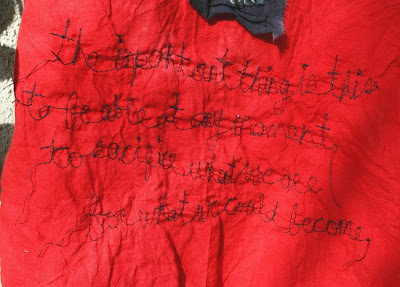 the important thing is this
to be able at any moment,
to sacrifice what we are
for what we could become,